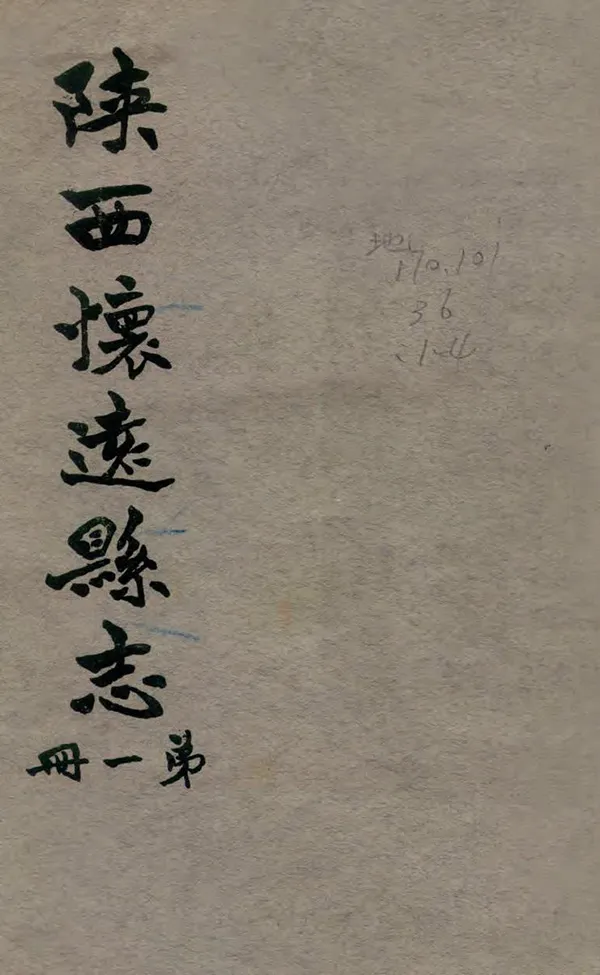 陝西懷遠縣志
弟一冊
地
170.101
36
:1-4